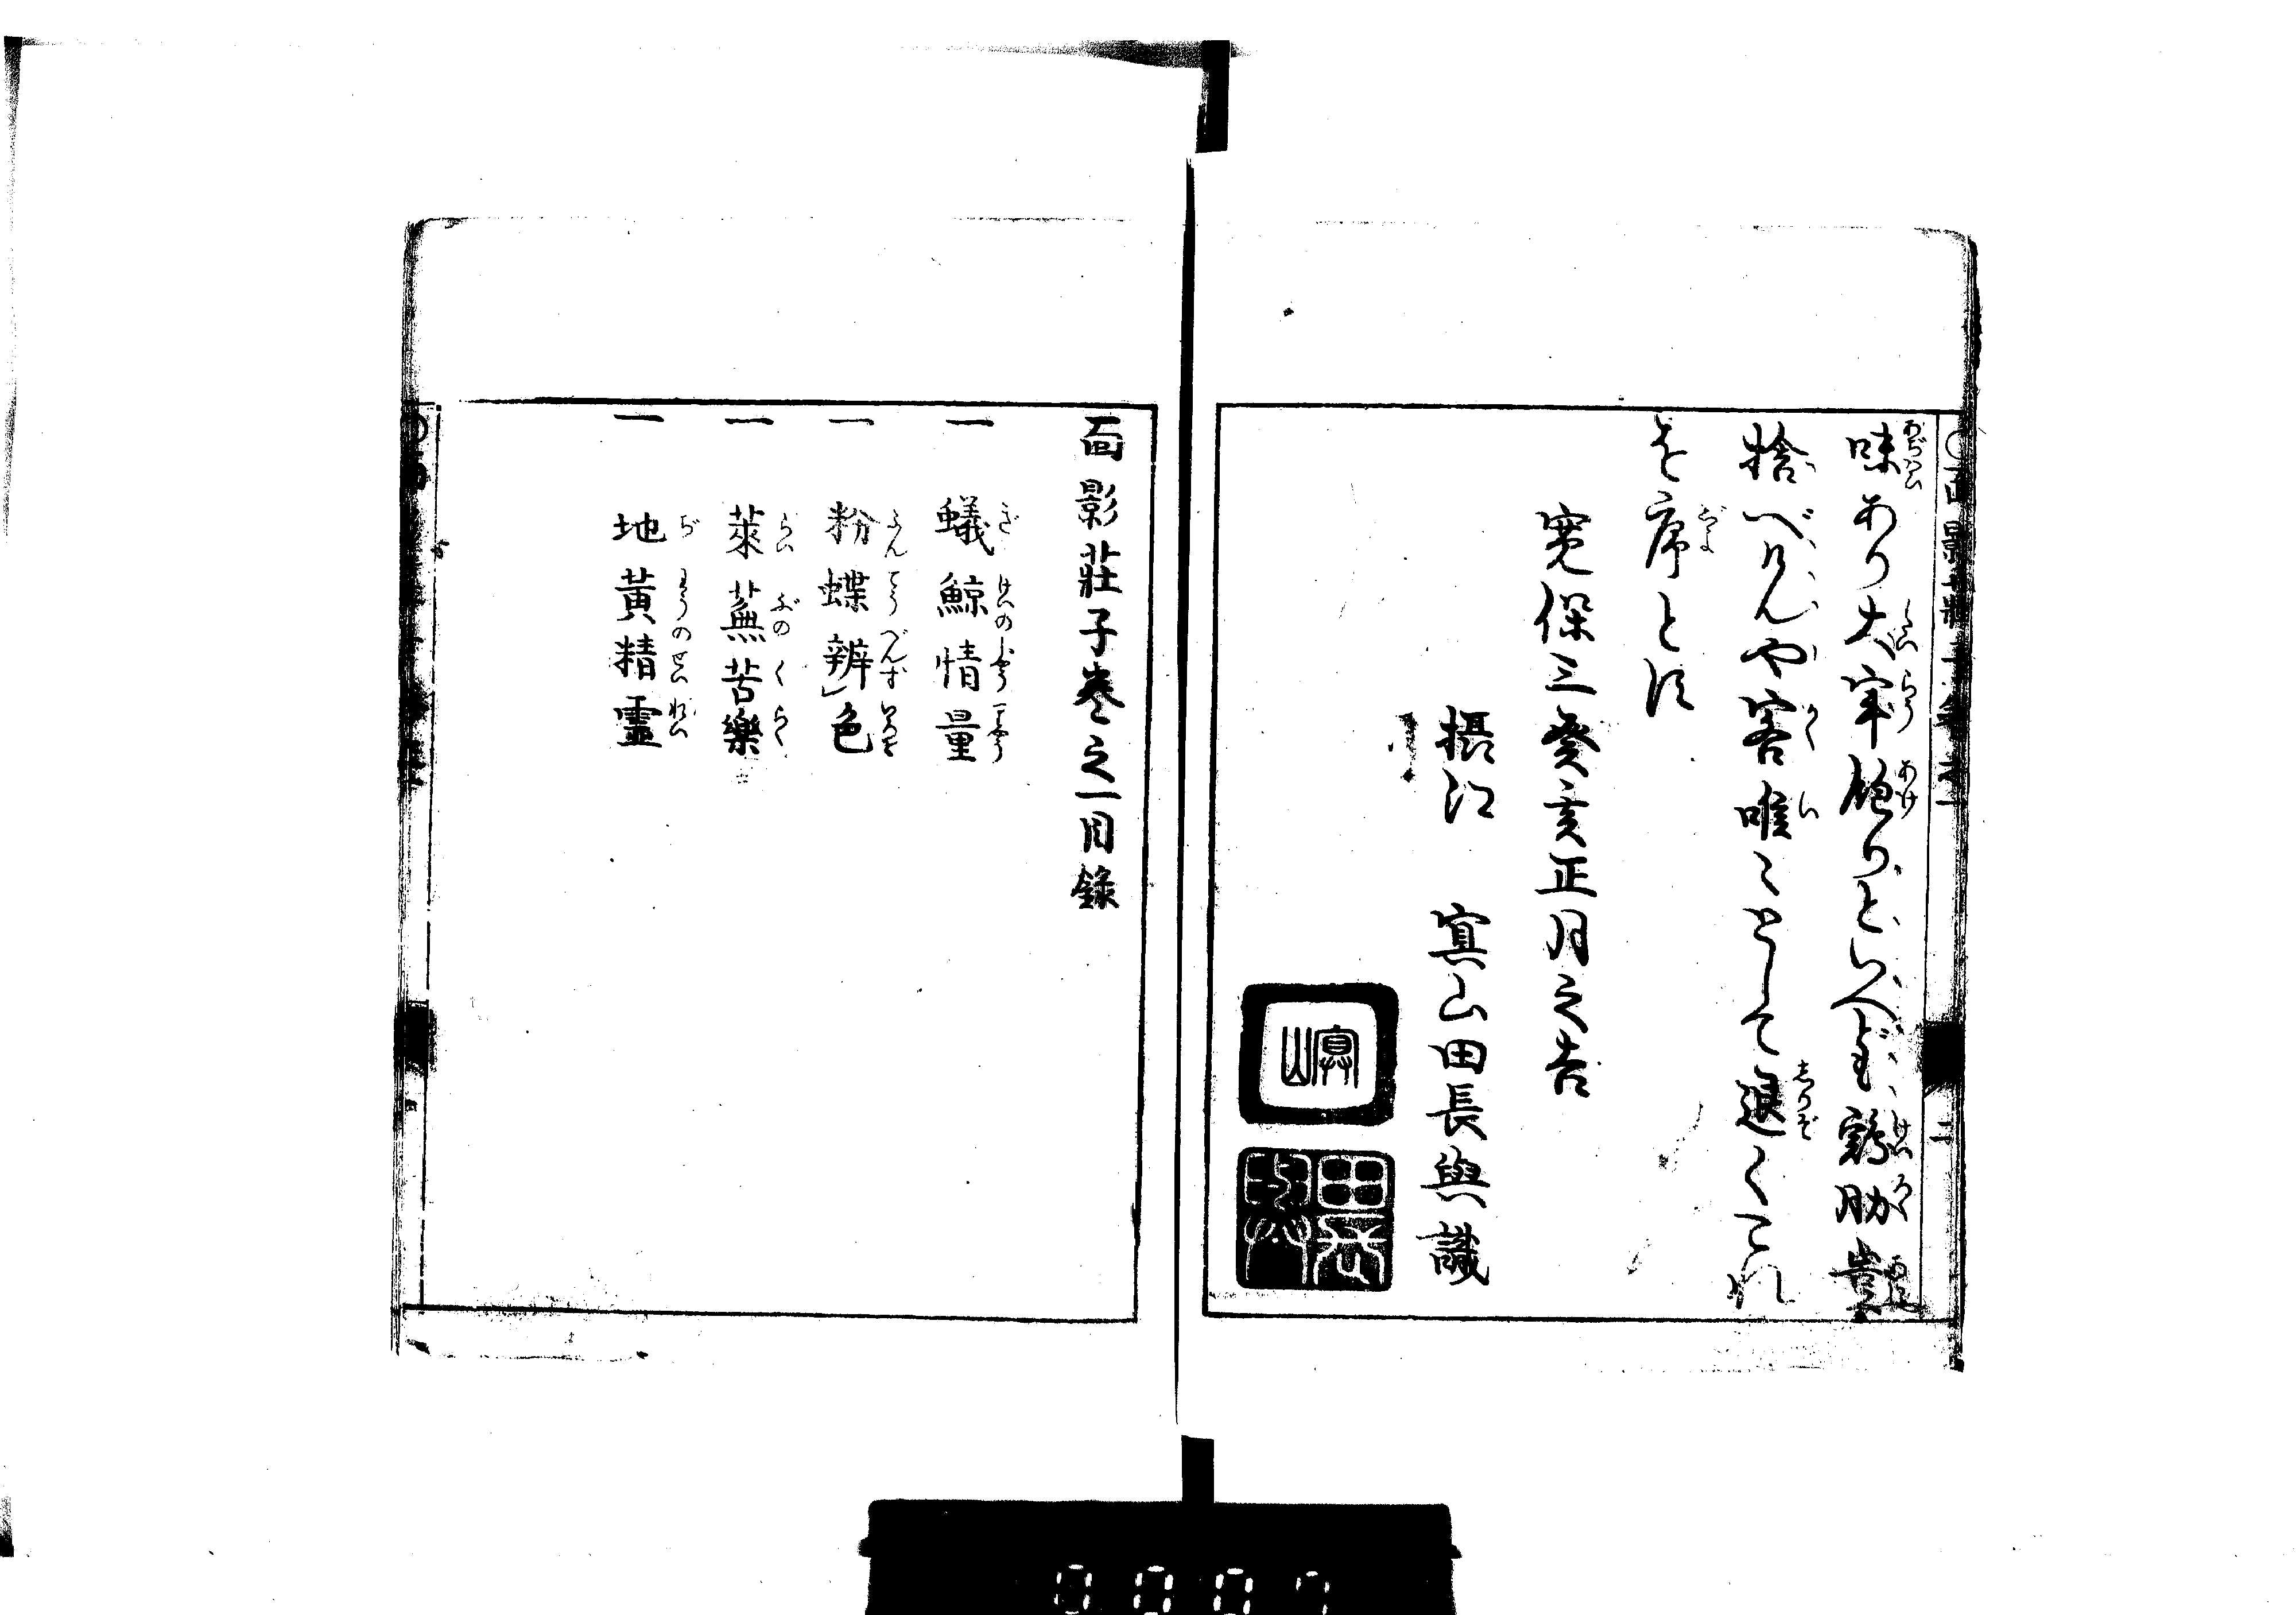 味あり大牢飽りといへども鶏肋豈
捨べけんや客唯〻として退くこれ
を序とす
寛保三癸亥正月之吉
摂江 寘山田長與識
面影荘子巻之一目録
一 蟻鯨情量
一 粉蝶辨色
一 莱蕪苦樂
一 地黄精霊